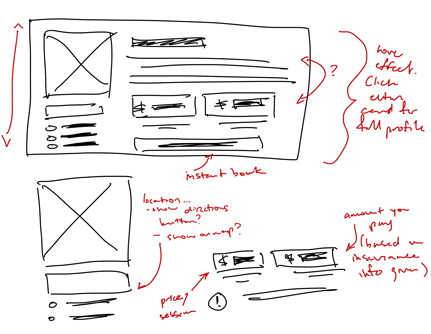 hover
effect.
Click
entire
card for
full profile
?
$
$
instant book
location...
- show directions
button?
- show on map?
amount you
pay
(based on
insurance
info given)
$
$
price/
session
!